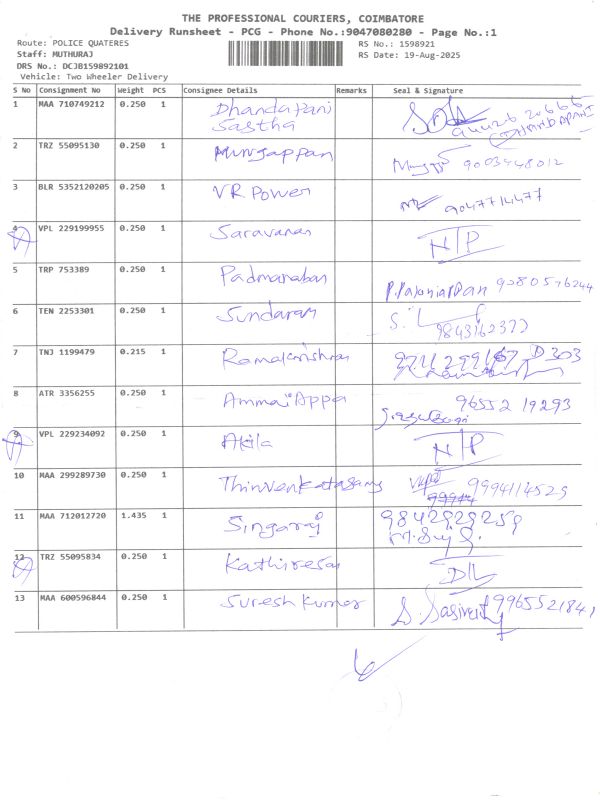 THE PROFESSIONAL COURIERS, COIMBATORE
Delivery Runsheet - PCG - Phone No.:9047080280 - Page No.:1
Route: POLICE QUATERES RS No.: 1598921
Staff: MUTHURAJ RS Date: 19-Aug-2025
DRS No.: DCJB159892101
Vehicle: Two Wheeler Delivery
S No Consignment No Weight PCS Consignee Details Remarks Seal & Signature
1 MAA 710749212 0.250 1 Dhandapani
Sastha
2 TRZ 55095130 0.250 1 Murugappan 9003448012
3 BLR 5352120205 0.250 1 V.R.Power 9047714477
4 VPL 229199955 0.250 1 Saravanan N/P
5 TRP 753389 0.250 1 Padmanaban 9080576244
6 TEN 2253301 0.250 1 Sundaram
9843162372
7 TNJ 1199479 0.215 1 Ramakrishnan D 303
8 ATR 3356255 0.250 1 Ammai Appa 96552 19293
9 VPL 229234092 0.250 1 Akila N/P
10 MAA 299289730 0.250 1 9994114529
11 MAA 712012720 1.435 1 Singaraj 9842929259
12 TRZ 55095834 0.250 1 Kathiresan D/L
13 MAA 600596844 0.250 1 Suresh Kumar 9965521841